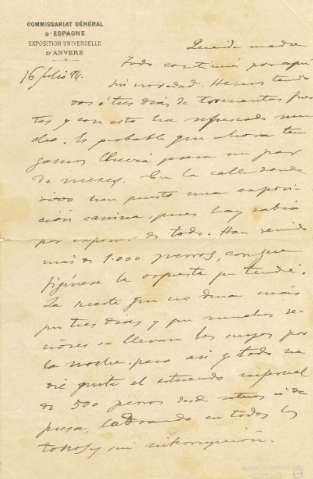 COMMISSARIAT GÉNÉRAL
D'ESPAGNE
EXPOSITION UNIVERSELLE
D'ANVERS
16 Julio 94.
Querida madre
Todo continúa por aquí
sin novedad. Hemos tenido
dos ó tres días de tormentas fuer
tes y con esto ha refrescado mu
cho. Es probable que ahora ten
gamos lluvia para un par
de meses. En la calle donde
vivo han puesto una exposi
ción canina, pues hay rabia
por exponer de todo. Han reunido
más de 1.000 perros, con que
figúrese la orquesta que tendré.
La suerte que no dura más
que tres días y que muchos se
ñores se llevan los suyos por
la noche, pero así y todo na
die quita el estruendo infernal
de 500 perros de
presa, ladrando en todos los
tonos y sin interrupción.